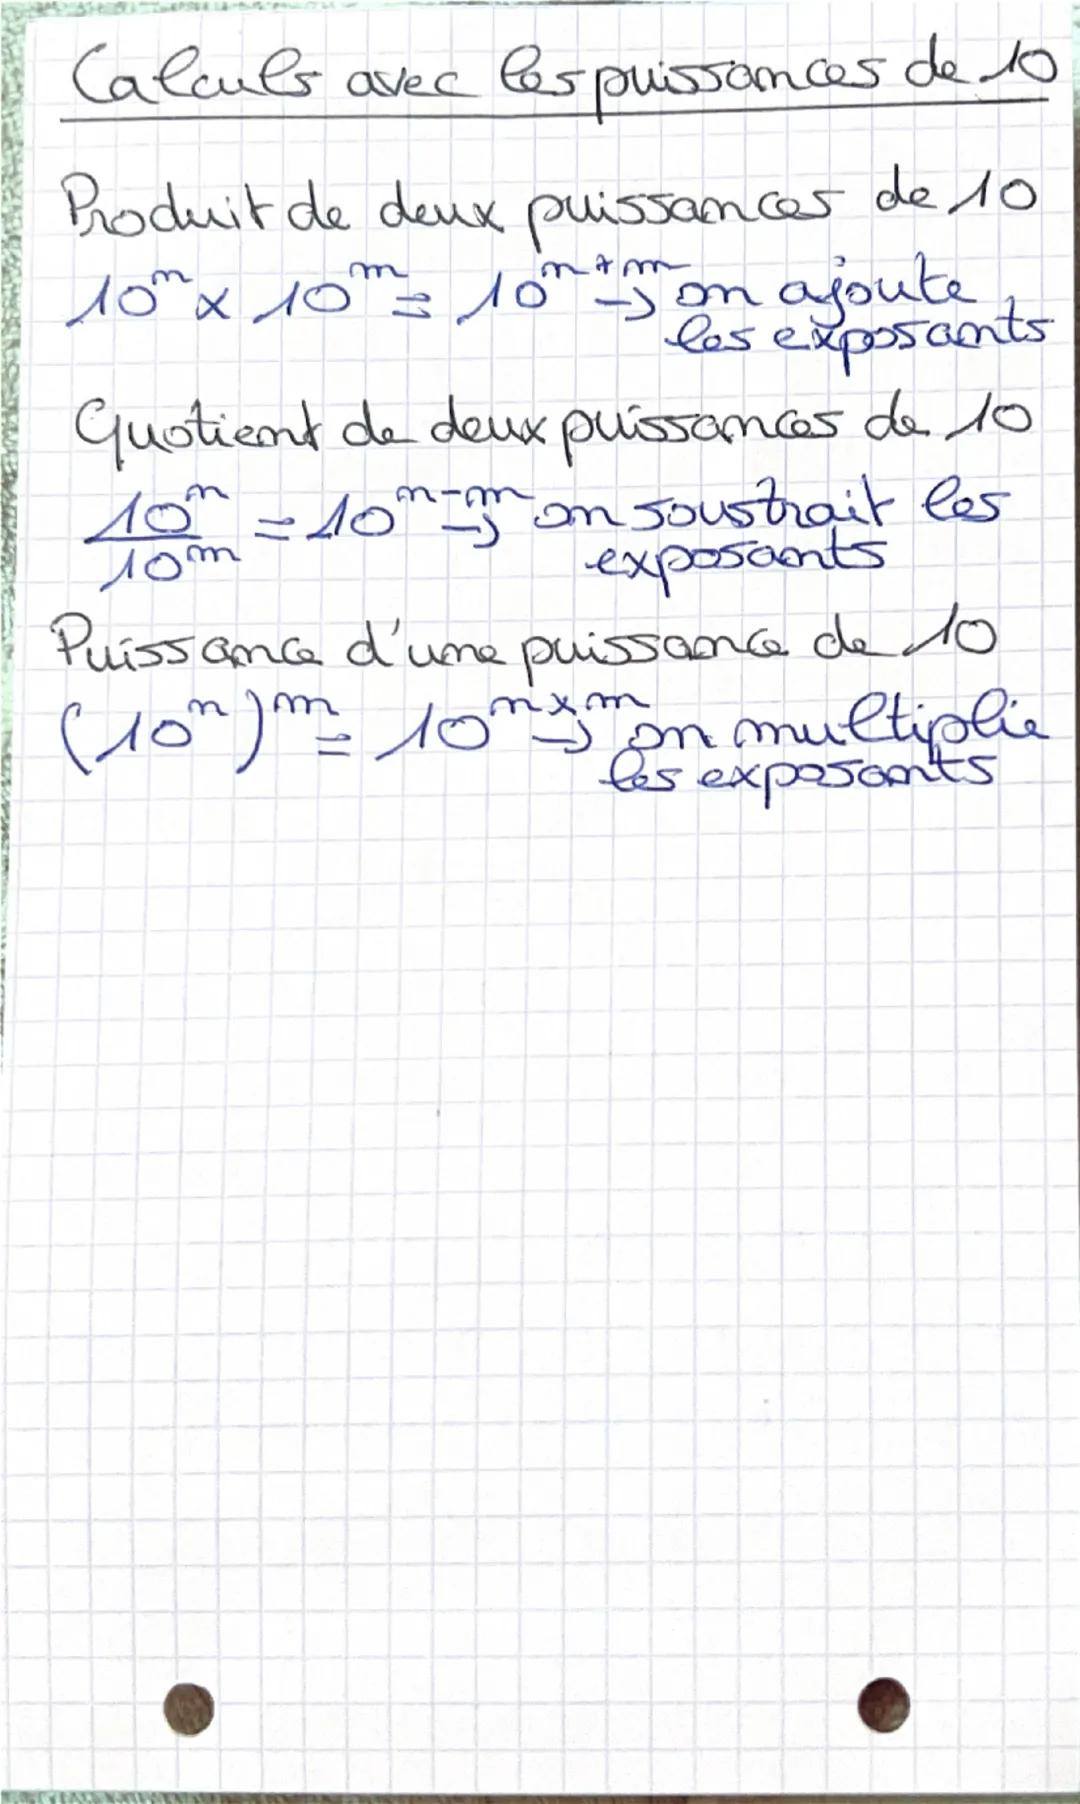 Calculs avec les puissances de 10
Produit de deux puissances de 10
10ⁿ x 10ᵐ = 10ⁿ⁺ᵐ → on ajoute
les exposants
Quotient de deux puissances de 10
10ⁿ/10ᵐ = 10ⁿ⁻ᵐ → on soustrait les
exposants
Puissance d'une puissance de 10
(10ⁿ)ᵐ = 10ⁿˣᵐ → on multiplie
les exposants